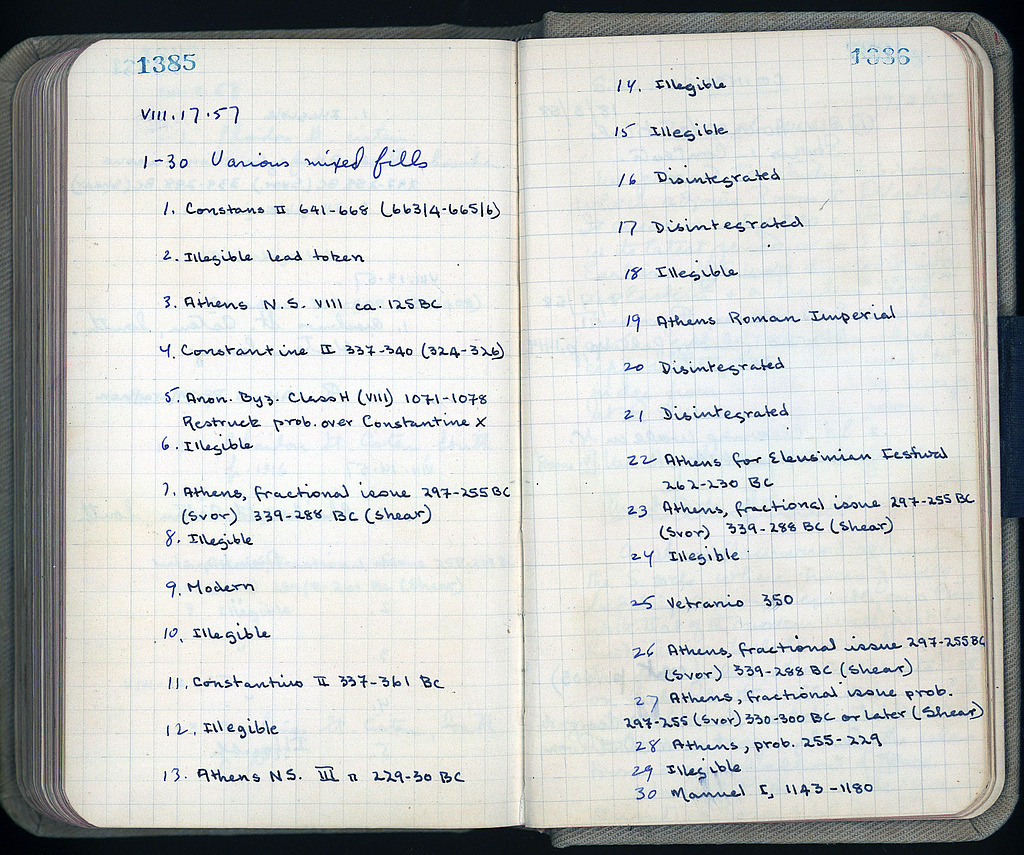 1385
VIII.17.57
1-30 Various mixed fills
1. Constans II 641-668 (663/4-665/6)
2. Illegible lead token
3. Athens N.S. VIII ca. 125 BC
4. Constantine II 337-340 (324-326)
5. Anon. Byz. Class H (VIII) 1071-1078
Restruck prob. over Constantine X
6. Illegible
7. Athens, fractional issue 297-255 BC
(Svor) 339-288 BC (Shear)
8. Illegible
9. Modern
10. Illegible
11. II 337-361 BC
12. Illegible
13. Athens NS. III 229-30 BC
1386
14. Illegible
15 Illegible
16 Disintegrated
17 Disintegrated
18 Illegible
19 Athens Roman Imperial
20 Disintegrated
21 Disintegrated
22 Athens for Eleusinian Festival
262-230 BC
23 Athens, fractional issue 297-255 BC
(Svor) 339-288 BC (Shear)
24 Illegible
25 Vetranio 350
26 Athens, fractional issue 297-255 BC
(Svor) 339-288 BC (Shear)
27 Athens, fractional issue prob.
297-255 (Svor) 330-300 BC or later (Shear)
28 Athens, prob. 255-229
29 Illegible
30 Manuel I, 1143-1180